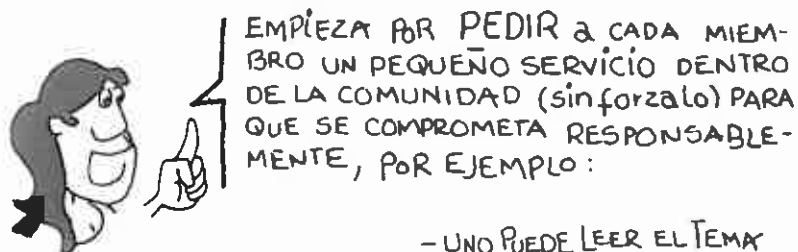 EMPIEZA POR PEDIR a CADA MIEM-
BRO UN PEQUEÑO SERVICIO DENTRO
DE LA COMUNIDAD (sin forzalo) PARA
QUE SE COMPROMETA RESPONSABLE-
MENTE, POR EJEMPLO:
- UNO PUEDE LEER EL TEMA